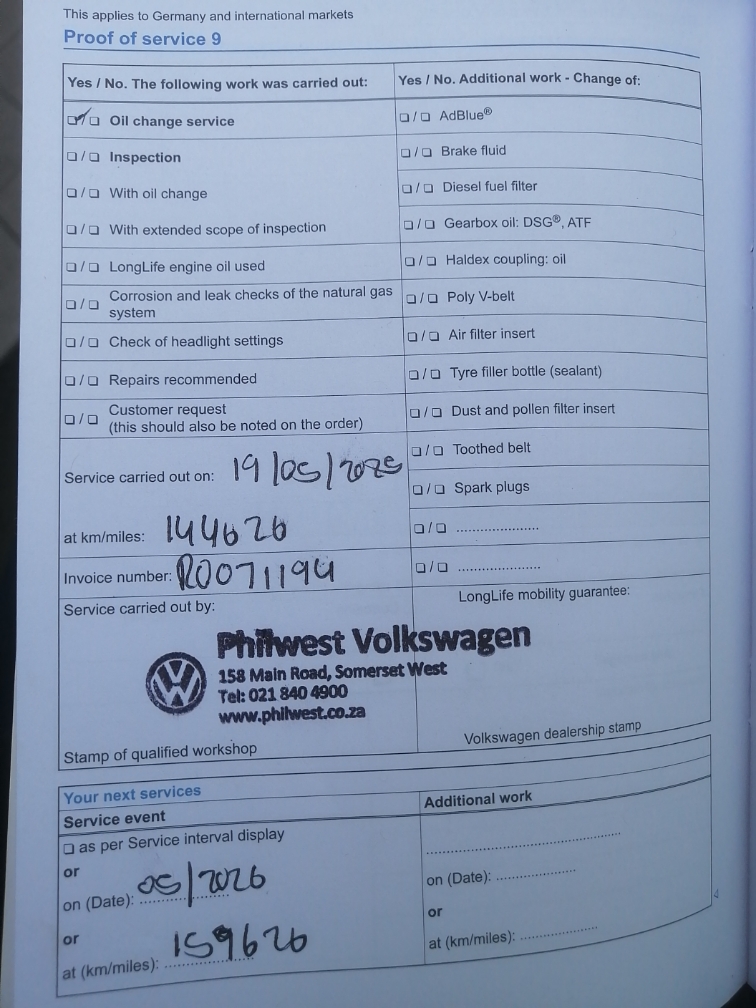 This applies to Germany and international markets
Proof of service 9
Yes / No. The following work was carried out:
☑/☐ Oil change service
☐/☐ Inspection
☐/☐ With oil change
☐/☐ With extended scope of inspection
☐/☐ LongLife engine oil used
☐/☐ Corrosion and leak checks of the natural gas
system
☐/☐ Check of headlight settings
☐/☐ Repairs recommended
☐/☐ Customer request
(this should also be noted on the order)
Service carried out on: 19/05/2025
at km/miles: 144626
Invoice number: R0071194
Yes / No. Additional work - Change of:
☐/☐ AdBlue®
☐/☐ Brake fluid
☐/☐ Diesel fuel filter
☐/☐ Gearbox oil: DSG®, ATF
☐/☐ Haldex coupling: oil
☐/☐ Poly V-belt
☐/☐ Air filter insert
☐/☐ Tyre filler bottle (sealant)
☐/☐ Dust and pollen filter insert
☐/☐ Toothed belt
☐/☐ Spark plugs
☐/☐ .....................
☐/☐ .....................
Service carried out by:
Philwest Volkswagen
158 Main Road, Somerset West
Tel: 021 840 4900
www.philwest.co.za
Stamp of qualified workshop
LongLife mobility guarantee:
Volkswagen dealership stamp
Your next services
Service event
☐ as per Service interval display
or
on (Date): 05/2026
or
at (km/miles): 159626
Additional work
..................................................
on (Date): ....................
or
at (km/miles): ....................
4